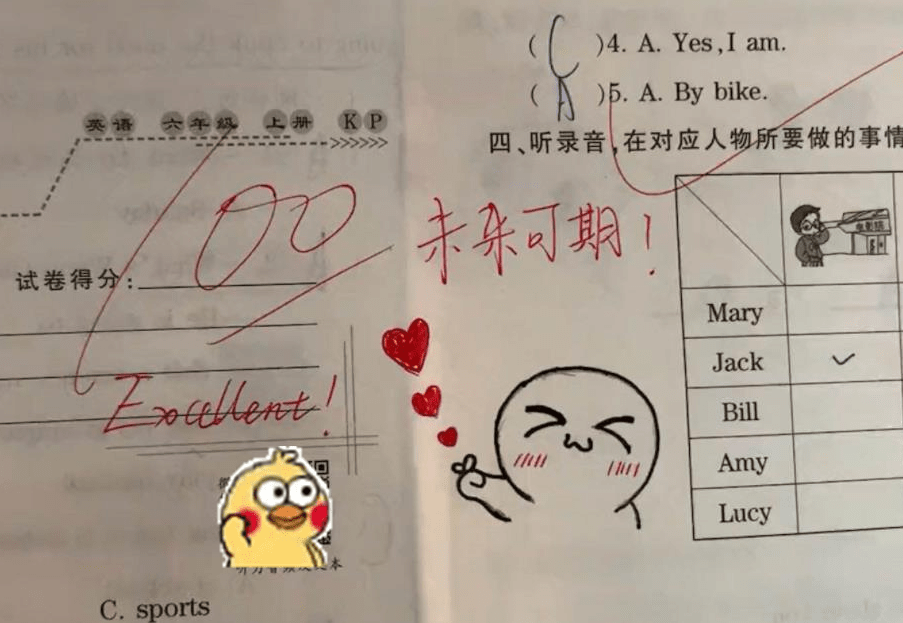 英语 六年级 上册 KP
试卷得分:
100
Excellent!
C. sports
未来可期!
( C )4. A. Yes,I am.
( A )5. A. By bike.
四、听录音,在对应人物所要做的事情
电影院
Mary
Jack
Bill
Amy
Lucy